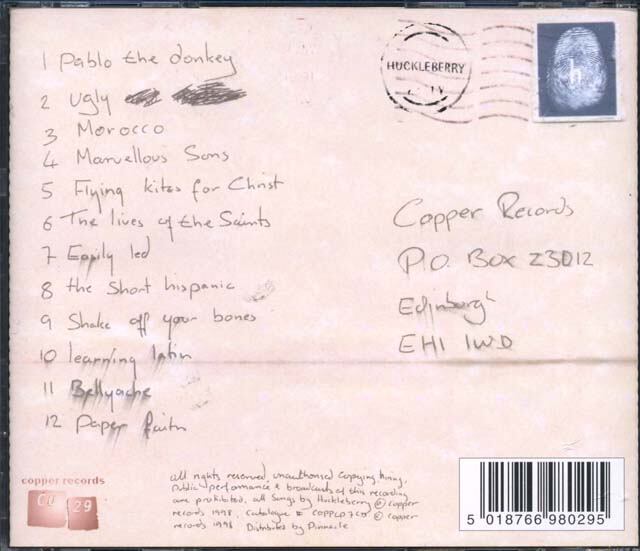 1 Pablo the donkey
2 Ugly
3 Morocco
4 Marvellous Sons
5 Flying kites for Christ
6 The lives of the Saints
7 Easily led
8 the Short hispanic
9 Shake off your bones
10 learning latin
11 Bellyache
12 Paper faith
HUCKLEBERRY
h
Copper Records
P.O. BOX 23012
Edinburgh
EH1 1WD
copper records
Cu 29
all rights reserved unauthorised copying hiring,
public performance & broadcasts of this recording
are prohibited. all Songs by Huckleberry ℗ copper
records 1998. Catalogue # COPPCD7CD © copper
records 1998 Distributed by Pinnacle
5 018766 980295